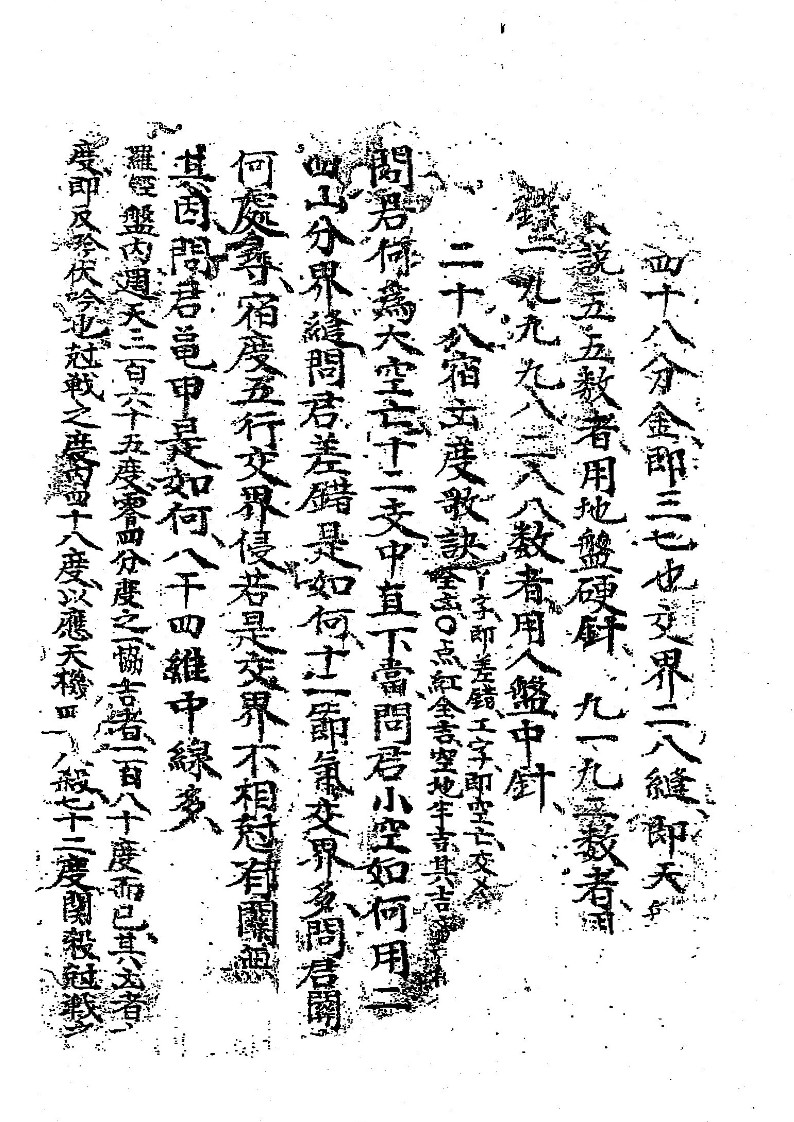 四十八分金即三七也交界二八縫即天
說五五数者用地盤硬針 九一九三数者用
一九九九八二八八数者用人盤中針
二十八宿立度歌訣 丫字即差錯工字即空亡交乂 全凶〇点紅全吉空地半吉其吉
問君何為大空亡十二支中直下當問君小空如何用二
四山分界縫問君差錯是如何十二節氣交界多問君關
何處尋宿度五行交界侵若是交界不相尅有關
其因問君黾甲是如何八干四維中線多
羅經盤內週天三百六十五度零四分度之一恊吉者一百八十度而已其凶者
度即反吟伏吟也尅戰之度內四十八度以應天機四 八殺七十二度関殺尅戰